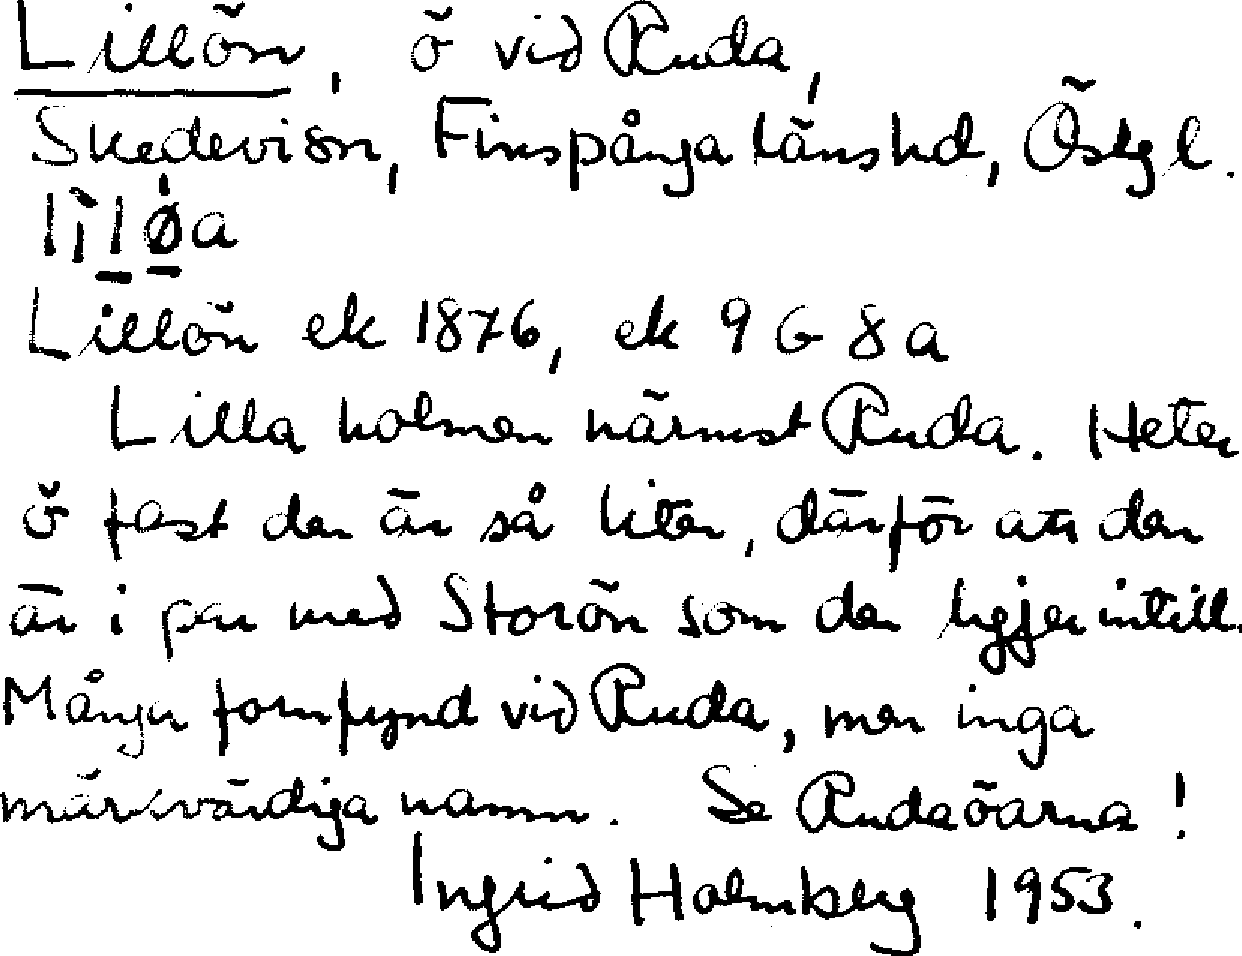 Lillön, ö vid Ruda,
Skedevi sn, Finspånga länshd, Östgl.
Lillön ek 1876, ek 9 G 8 a
Lilla holmen närmst Ruda. Heter
ö fast den är så liten, därför att den
är i par med Storön som den ligjer intill.
Många fornfynd vid Ruda, men inga
märkvärdiga namn. Se Rudaöarna!
Ingrid Holmberg 1953.